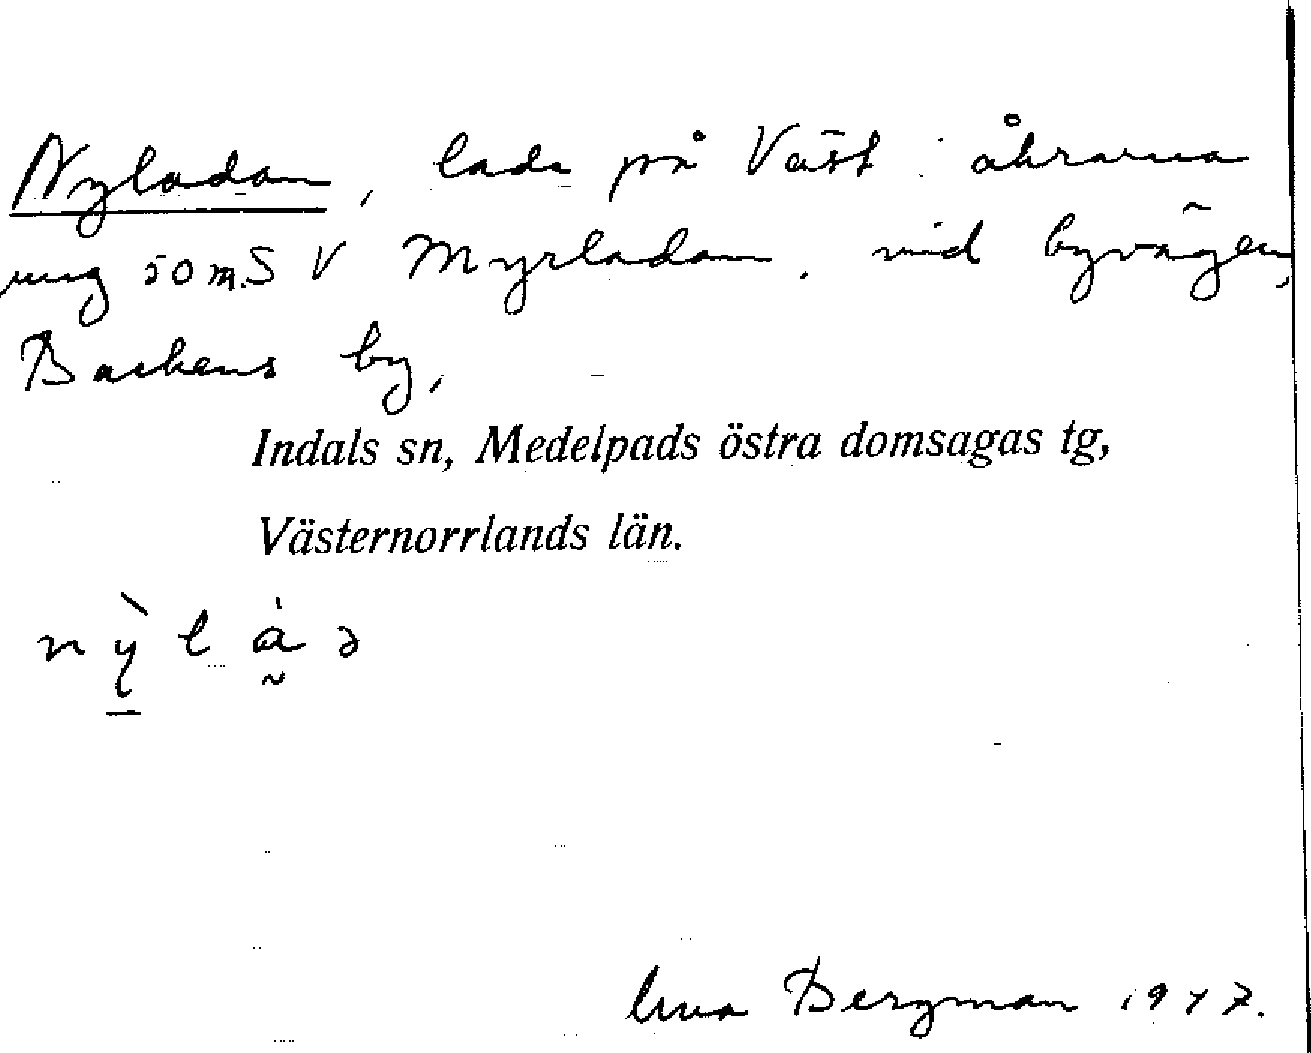 Nyladan, lada på Väst åkrarna
ung 50 m. S V Myrladan, vid byvägen,
Backens by,
Indals sn, Medelpads östra domsagas tg,
Västernorrlands län.
nỳlàə
Bergman 1947.